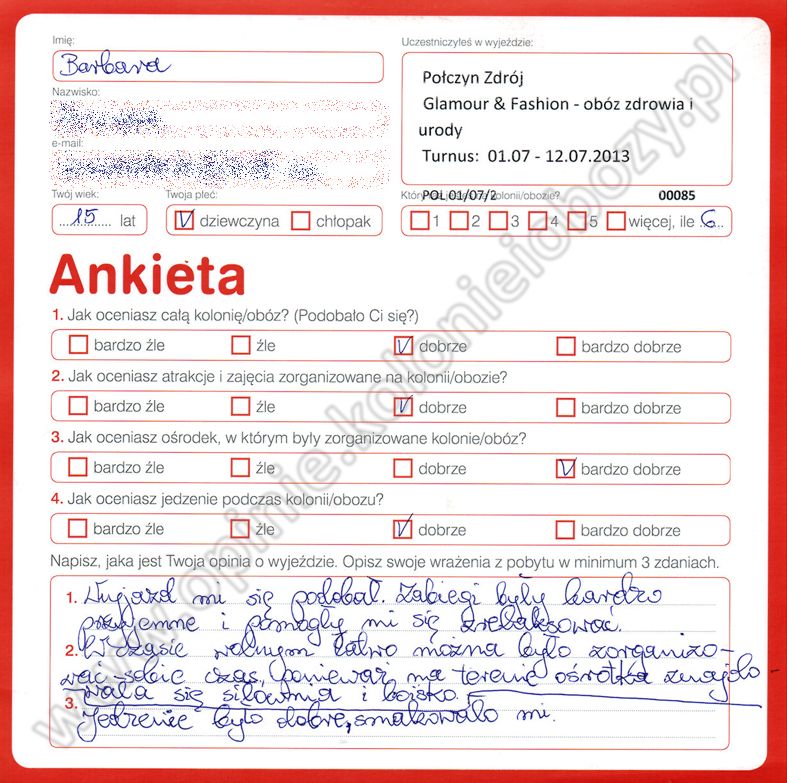 Imię:
Barbara
Nazwisko:
e-mail:
Twój wiek:
15 lat
Twoja płeć:
dziewczyna chłopak
Uczestniczyłeś w wyjeździe:
Połczyn Zdrój
Glamour & Fashion - obóz zdrowia i
urody
Turnus: 01.07 - 12.07.2013
POL 01/07/2 00085
Który kolonii/obozie?
1 2 3 4 5 więcej, ile 6
Ankieta
1. Jak oceniasz całą kolonię/obóz? (Podobało Ci się?)
bardzo źle źle dobrze bardzo dobrze
2. Jak oceniasz atrakcje i zajęcia zorganizowane na kolonii/obozie?
bardzo źle źle dobrze bardzo dobrze
3. Jak oceniasz ośrodek, w którym były zorganizowane kolonie/obóz?
bardzo źle źle dobrze bardzo dobrze
4. Jak oceniasz jedzenie podczas kolonii/obozu?
bardzo źle źle dobrze bardzo dobrze
Napisz, jaka jest Twoja opinia o wyjeździe. Opisz swoje wrażenia z pobytu w minimum 3 zdaniach.
1. Wyjazd mi się podobał. Zabiegi były bardzo
przyjemne i pomogły mi się zrelaksować.
2. W czasie wolnym łatwo można było zorganizo-
wać sobie czas, ponieważ na terenie ośrodka znajdo-
3. wała się siłownia i boisko.
Jedzenie było dobre, smakowało mi.
www.opinie.kolonieiobozy.pl